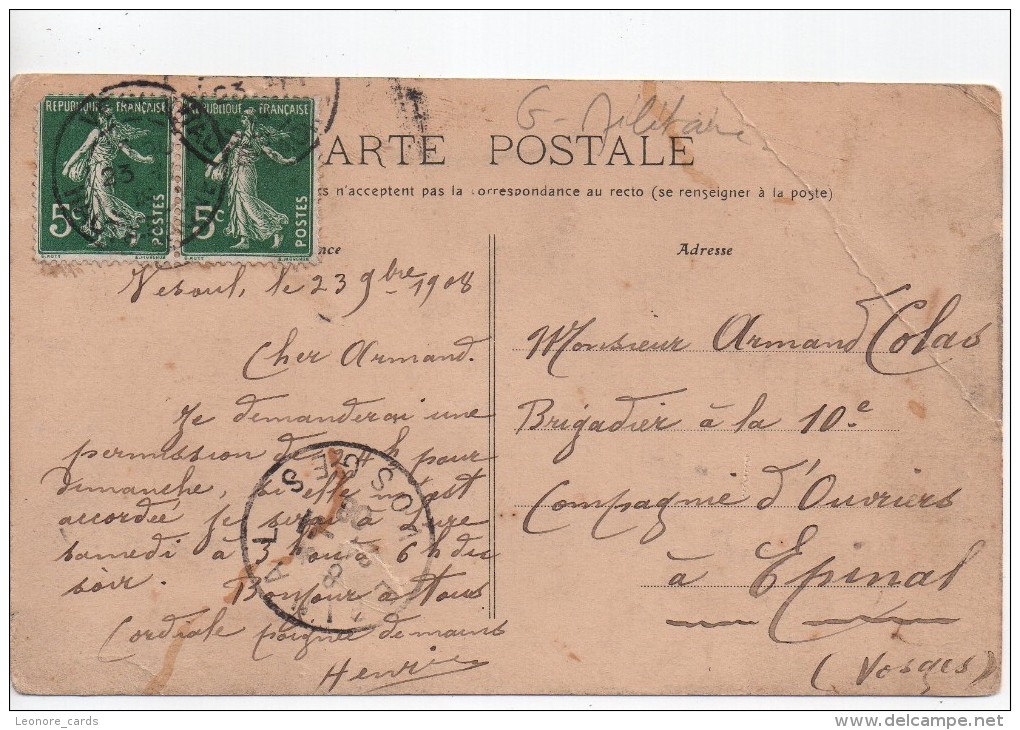 G - Militaire
REPUBLIQUE FRANÇAISE
REPUBLIQUE FRANÇAISE
5c POSTES
5c POSTES
ARTE POSTALE
rs n'acceptent pas la correspondance au recto (se renseigner à la poste)
nce
Vesoul, le 23 9bre 1908
Cher Armand.
Je demanderai une
permission de 24 h pour
dimanche, si elle m'est
accordée je serai à Lure
samedi à 3 h ou à 6 h du
soir. Bonjour à tous
Cordiale poignée de mains
Henri
VOSGES
Adresse
Monsieur Armand Colas
Brigadier à la 10e
Compagnie d'Ouvriers
à Epinal
(Vosges)
Leonore_cards
delcampe.net